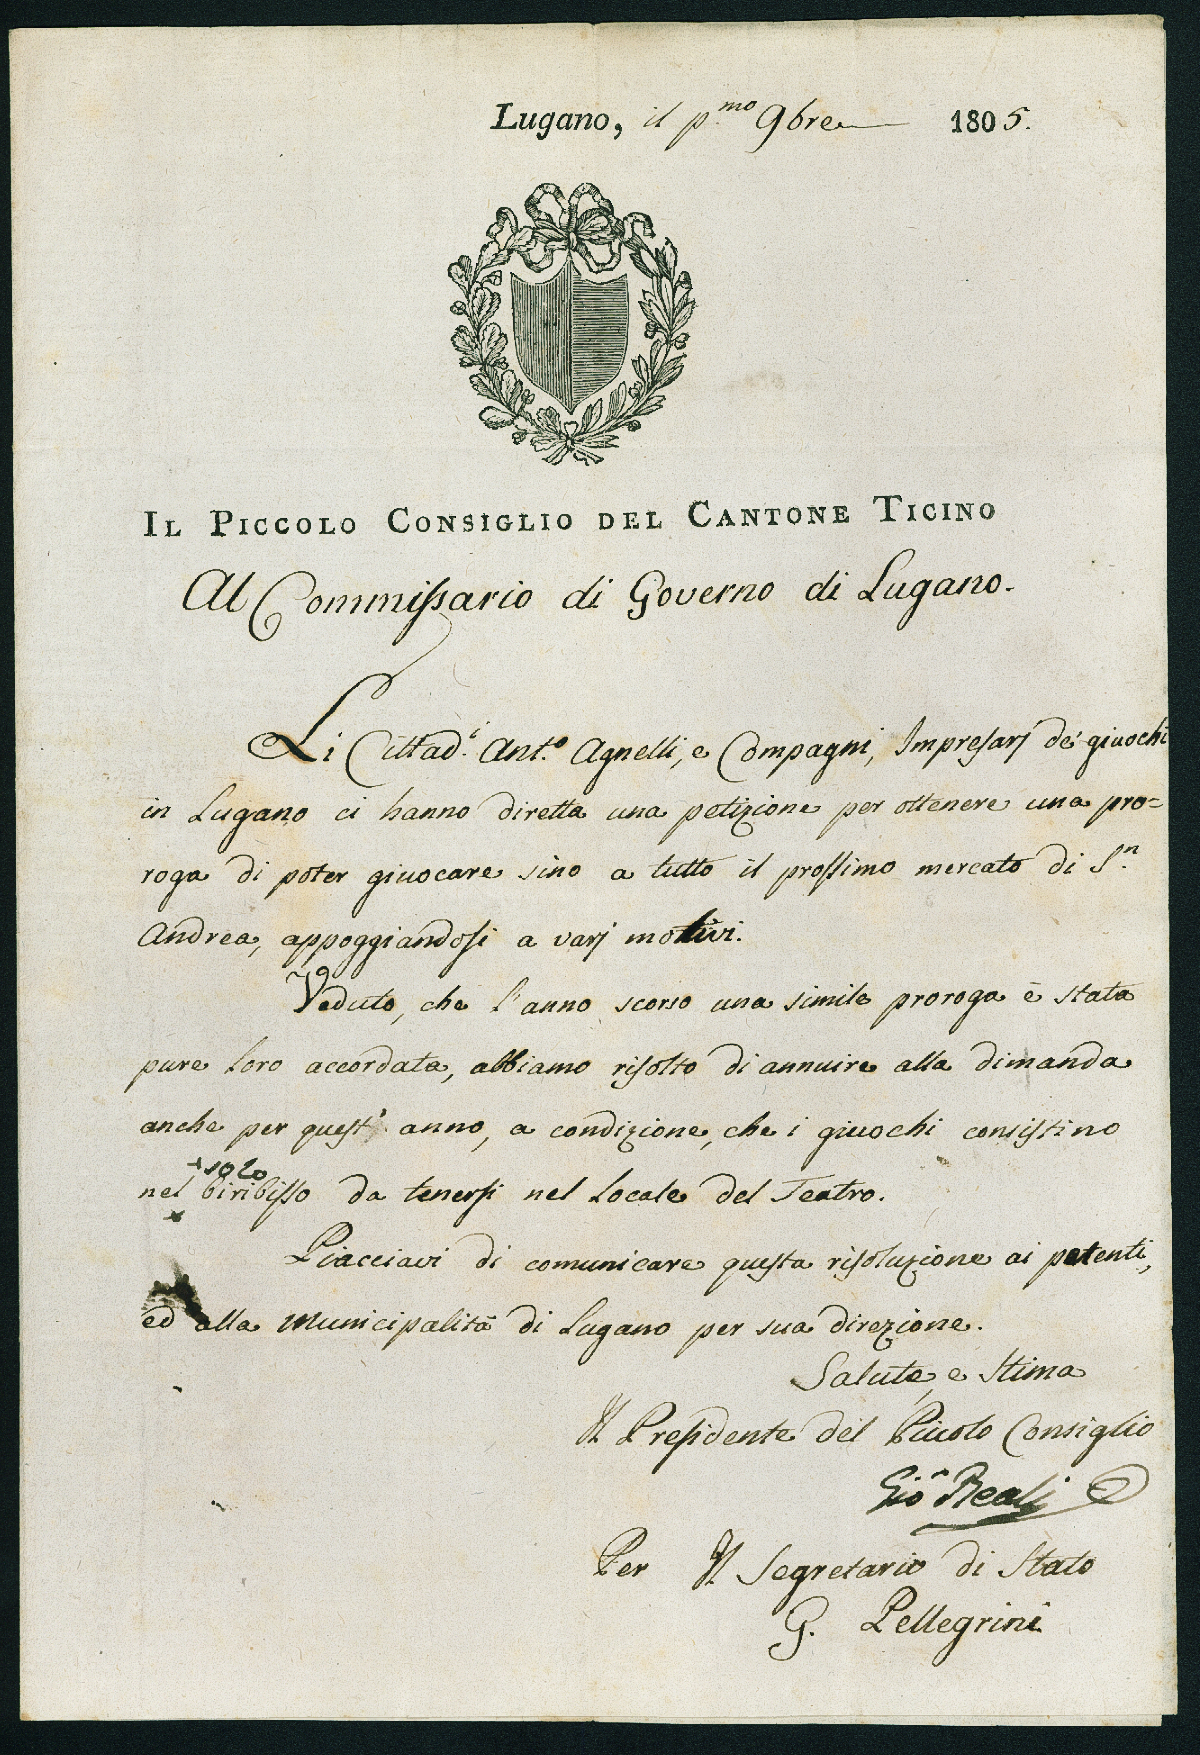 Lugano, il p.mo 9bre 1805.
IL PICCOLO CONSIGLIO DEL CANTONE TICINO
Al Commissario di Governo di Lugano.
Li Cittad.i Ant.o Agnelli, e Compagni, Impresarj de' giuochi
in Lugano ci hanno diretta una petizione per ottenere una pro=
roga di poter giuocare sino a tutto il prossimo mercato di S.n
Andrea, appoggiandosi a varj motivi.
Veduto, che l'anno scorso una simile proroga è stata
pure loro accordata, abbiamo risolto di annuire alla dimanda
anche per quest' anno, a condizione, che i giuochi consistino
+ solo
nel biribisso da tenersi nel locale del Teatro.
Piacciavi di comunicare questa risoluzione ai petenti,
ed alla Municipalità di Lugano per sua direzione.
Salute, e Stima
Il Presidente del Piccolo Consiglio
Gio Reali
Per Il Segretario di Stato
G. Pellegrini